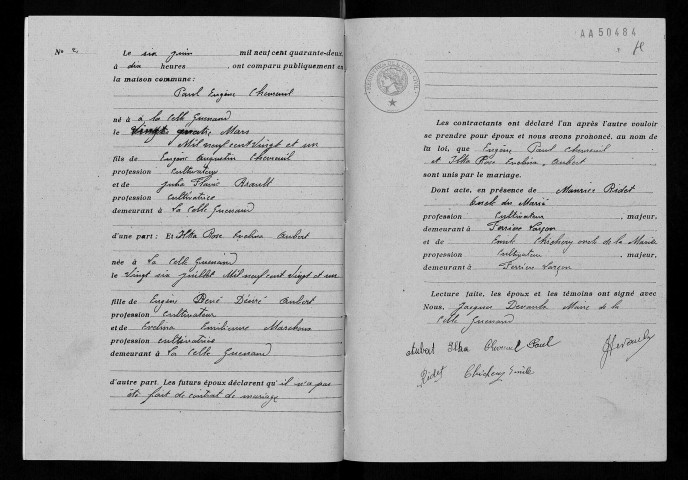 No 2,
Le six juin mil neuf cent quarante-deux
à dix heures , ont comparu publiquement en
la maison commune:
Paul Eugène Chevreuil
né à à la Celle Guenand
le Vingt quatre Mars
Mil neuf cent vingt et un
fils de Eugène Augustin Chevreuil
profession Cultivateur
et de Julie Flavie Brault
profession cultivatrice
demeurant à La Celle Guenand
d'une part: Et Ilka Rose Evelina Aubert
née à La Celle Guenand
le Vingt six juillet Mil neuf cent vingt et un
fille de Eugène René Désiré Aubert
profession Cultivateur
et de Evelina Emilienne
profession cultivatrice
demeurant à La Celle Guenand
d'autre part. Les futurs époux déclarent qu'il n'a pas
été fait de contrat de mariage
AA50484
Les contractants ont déclaré l'un après l'autre vouloir
se prendre pour époux et nous avons prononcé, au nom de
la loi, que Eugène Paul Chevreuil
et Ilka Rose Evelina Aubert
sont unis par le mariage.
Dont acte, en présence de Maurice Ridet
oncle du Marié
profession Cultivateur , majeur.
demeurant à Ferrière Larçon
et de Emile Chicheny oncle de la Mariée
profession Cultivateur , majeur.
demeurant à Ferrière Larçon
Lecture faite, les époux et les témoins ont signé avec
Nous, Jacques Maire de la
Celle Guenand
Aubert Ilka Chevreuil Paul
Ridet Chicheny Emile